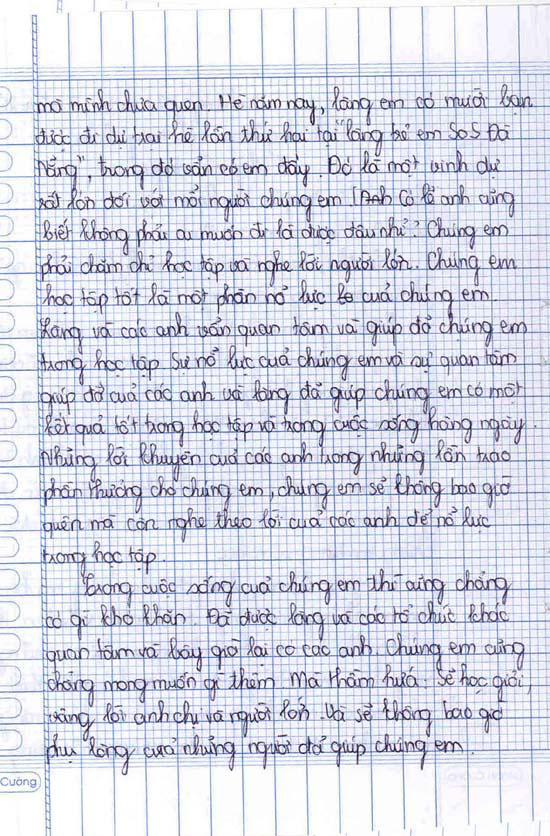 mà mình chưa quen. Hè năm nay, làng em có mười bạn
được đi dự trại hè lần thứ hai tại "làng trẻ em SOS Đà
Nẵng", trong đó vẫn có em đấy. Đó là một vinh dự
rất lớn đối với mỗi người chúng em Anh Có lẽ anh cũng
biết không phải ai muốn đi là được đâu nhỉ? Chúng em
phải chăm chỉ học tập và nghe lời người lớn. Chúng em
học tập tốt là một phần nổ lực cuả chúng em.
Làng và các anh vẫn quan tâm và giúp đở chúng em
trong học tập. Sự nổ lực cuả chúng em và sự quan tâm
giúp đở cuả các anh và làng đả giúp chúng em có một
kết quả tốt trong học tập và trong cuộc sống hằng ngày.
Những lời khuyên cuả các anh trong những lần trao
phần thưởng cho chúng em, chúng em sẻ không bao giờ
quên mà còn nghe theo lời cuả các anh để nổ lực
trong học tập.
Trong cuộc sống cuả chúng em thì cũng chẳng
có gì khó khăn. Đả được làng và các tổ chức khác
quan tâm và bây giờ lại có các anh. Chúng em cũng
chẳng mong muốn gì thêm. Mà thầm hứa: Sẻ học giỏi,
vâng lời anh chị và người lớn. Và sẻ không bao giờ
phụ lòng cuả những người đả giúp chúng em.
Cường